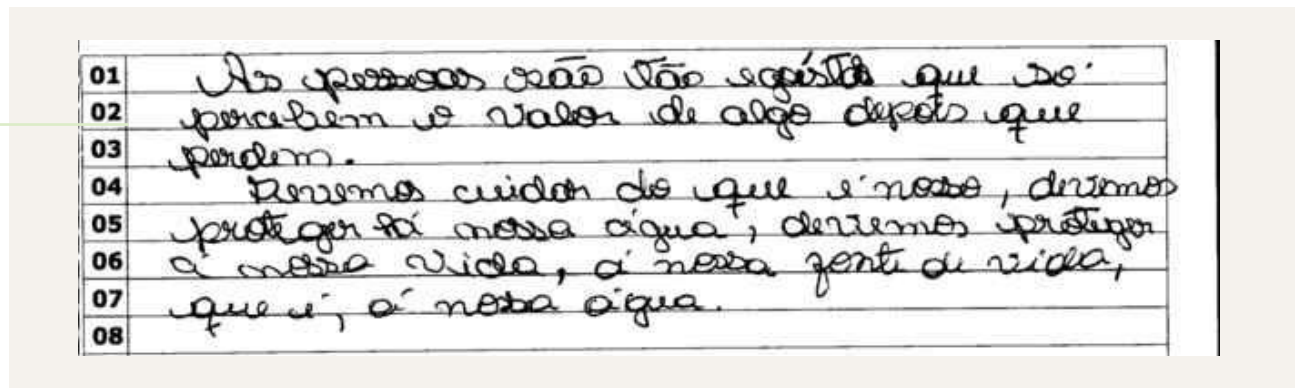 01 As pessoas são tão egoístas que só
02 percebem o valor de algo depois que
03 perdem.
04 Devemos cuidar do que é nosso, devemos
05 proteger á nossa água, devemos proteger
06 á nossa vida, á nossa fonte de vida,
07 que é, á nossa água.
08